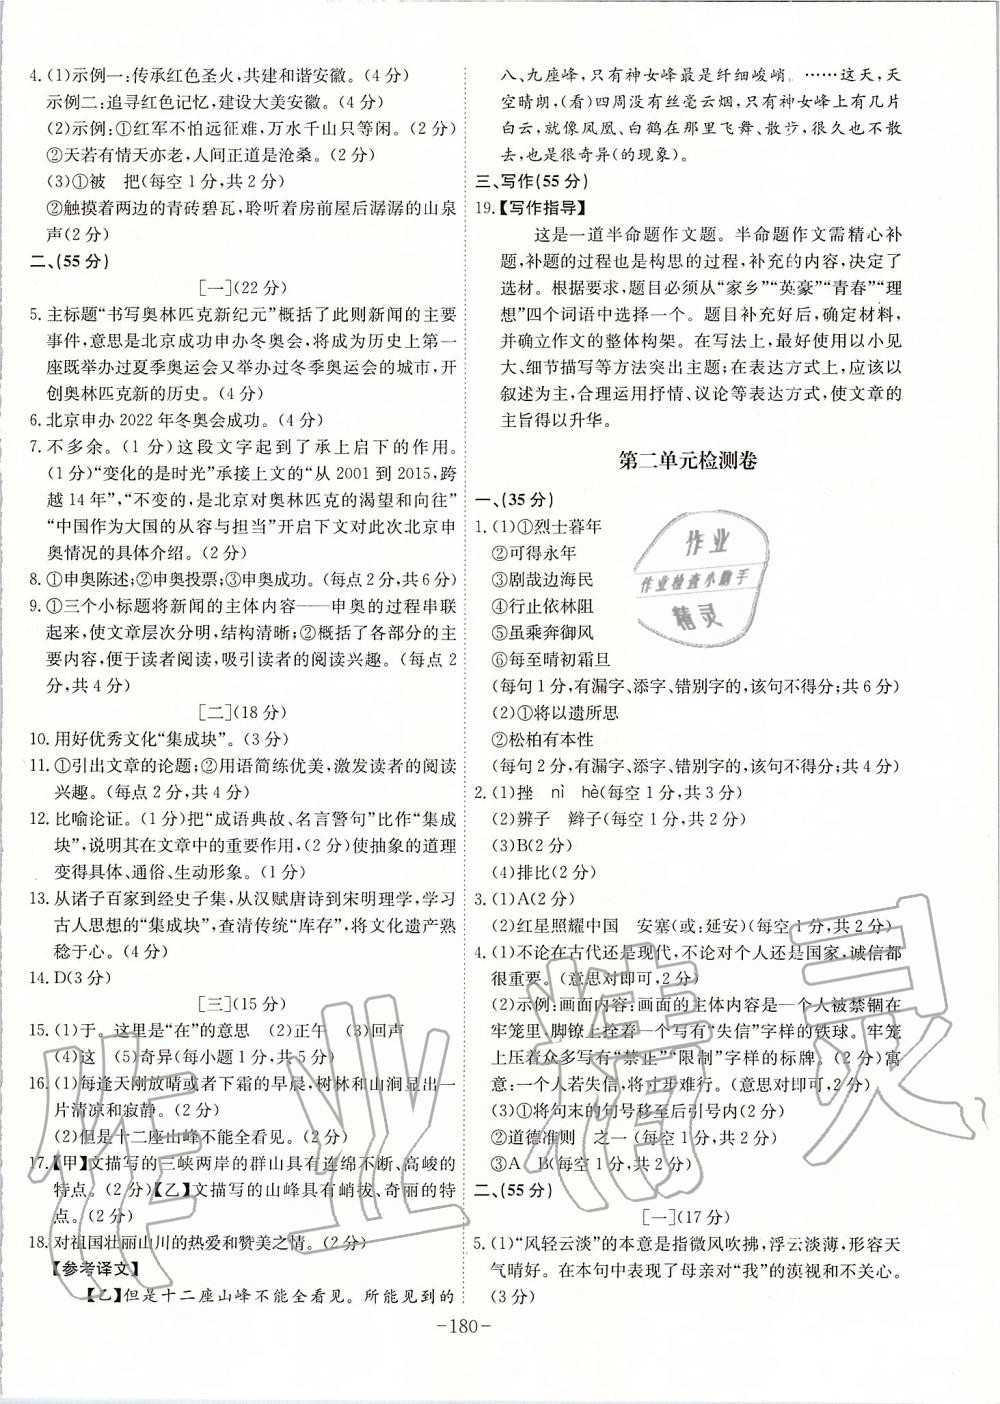 4.(1)示例一:传承红色圣火,共建和谐安徽。(4分)
示例二:追寻红色记忆,建设大美安徽。(4分)
(2)示例:①红军不怕远征难,万水千山只等闲。(2分)
②天若有情天亦老,人间正道是沧桑。(2分)
(3)①被　把(每空1分,共2分)
②触摸着两边的青砖碧瓦,聆听着房前屋后潺潺的山泉
声(2分)
二、(55分)
[一](22分)
5.主标题“书写奥林匹克新纪元”概括了此则新闻的主要
事件,意思是北京成功申办冬奥会,将成为历史上第一
座既举办过夏季奥运会又举办过冬季奥运会的城市,开
创奥林匹克新的历史。(4分)
6.北京申办2022年冬奥会成功。(4分)
7.不多余。(1分)这段文字起到了承上启下的作用。
(1分)“变化的是时光”承接上文的“从2001到2015,跨
越14年”,“不变的,是北京对奥林匹克的渴望和向往”
“中国作为大国的从容与担当”开启下文对此次北京申
奥情况的具体介绍。(2分)
8.①申奥陈述;②申奥投票;③申奥成功。(每点2分,共6分)
9.①三个小标题将新闻的主体内容——申奥的过程串联
起来,使文章层次分明,结构清晰;②概括了各部分的主
要内容,便于读者阅读,吸引读者的阅读兴趣。(每点2
分,共4分)
[二](18分)
10.用好优秀文化“集成块”。(3分)
11.①引出文章的论题;②用语简练优美,激发读者的阅读
兴趣。(每点2分,共4分)
12.比喻论证。(1分)把“成语典故、名言警句”比作“集成
块”,说明其在文章中的重要作用,(2分)使抽象的道理
变得具体、通俗、生动形象。(1分)
13.从诸子百家到经史子集,从汉赋唐诗到宋明理学,学习
古人思想的“集成块”,查清传统“库存”,将文化遗产熟
稔于心。(4分)
14.D(3分)
[三](15分)
15.(1)于。这里是“在”的意思　(2)正午　(3)回声
(4)这　(5)奇异(每小题1分,共5分)
16.(1)每逢天刚放晴或者下霜的早晨,树林和山涧显出一
片清凉和寂静。(2分)
(2)但是十二座山峰不能全看见。(2分)
17.【甲】文描写的三峡两岸的群山具有连绵不断、高峻的
特点。(2分)【乙】文描写的山峰具有峭拔、奇丽的特
点。(2分)
18.对祖国壮丽山川的热爱和赞美之情。(2分)
【参考译文】
【乙】但是十二座山峰不能全看见。所能见到的
八、九座峰,只有神女峰最是纤细峻峭。……这天,天
空晴朗,(看)四周没有丝毫云烟,只有神女峰上有几片
白云,就像凤凰、白鹤在那里飞舞、散步,很久也不散
去,也是很奇异(的现象)。
三、写作(55分)
19.【写作指导】
这是一道半命题作文题。半命题作文需精心补
题,补题的过程也是构思的过程,补充的内容,决定了
选材。根据要求,题目必须从“家乡”“英豪”“青春”“理
想”四个词语中选择一个。题目补充好后,确定材料,
并确立作文的整体构架。在写法上,最好使用以小见
大、细节描写等方法突出主题;在表达方式上,应该以
叙述为主,合理运用抒情、议论等表达方式,使文章的
主旨得以升华。
第二单元检测卷
一、(35分)
1.(1)①烈士暮年
②可得永年
③剧哉边海民
④行止依林阻
⑤虽乘奔御风
⑥每至晴初霜旦
(每句1分,有漏字、添字、错别字的,该句不得分;共6分)
(2)①将以遗所思
②松柏有本性
(每句2分,有漏字、添字、错别字的,该句不得分;共4分)
2.(1)挫　nì　hè(每空1分,共3分)
(2)辨子　辫子(每空1分,共2分)
(3)B(2分)
(4)排比(2分)
3.(1)A(2分)
(2)红星照耀中国　安塞(或:延安)(每空1分,共2分)
4.(1)不论在古代还是现代,不论对个人还是国家,诚信都
很重要。(意思对即可,2分)
(2)示例:画面内容:画面的主体内容是一个人被禁锢在
牢笼里,脚镣上拴着一个写有“失信”字样的铁球。牢笼
上压着众多写有“禁止”“限制”字样的标牌。(2分)寓
意:一个人若失信,将寸步难行。(意思对即可,2分)
(3)①将句末的句号移至后引号内(2分)
②道德准则　之一(每空1分,共2分)
③A　B(每空1分,共2分)
二、(55分)
[一](17分)
5.(1)“风轻云淡”的本意是指微风吹拂,浮云淡薄,形容天
气晴好。在本句中表现了母亲对“我”的漠视和不关心。
(3分)
-180-
作业
作业检查小助手
精灵
作业精灵